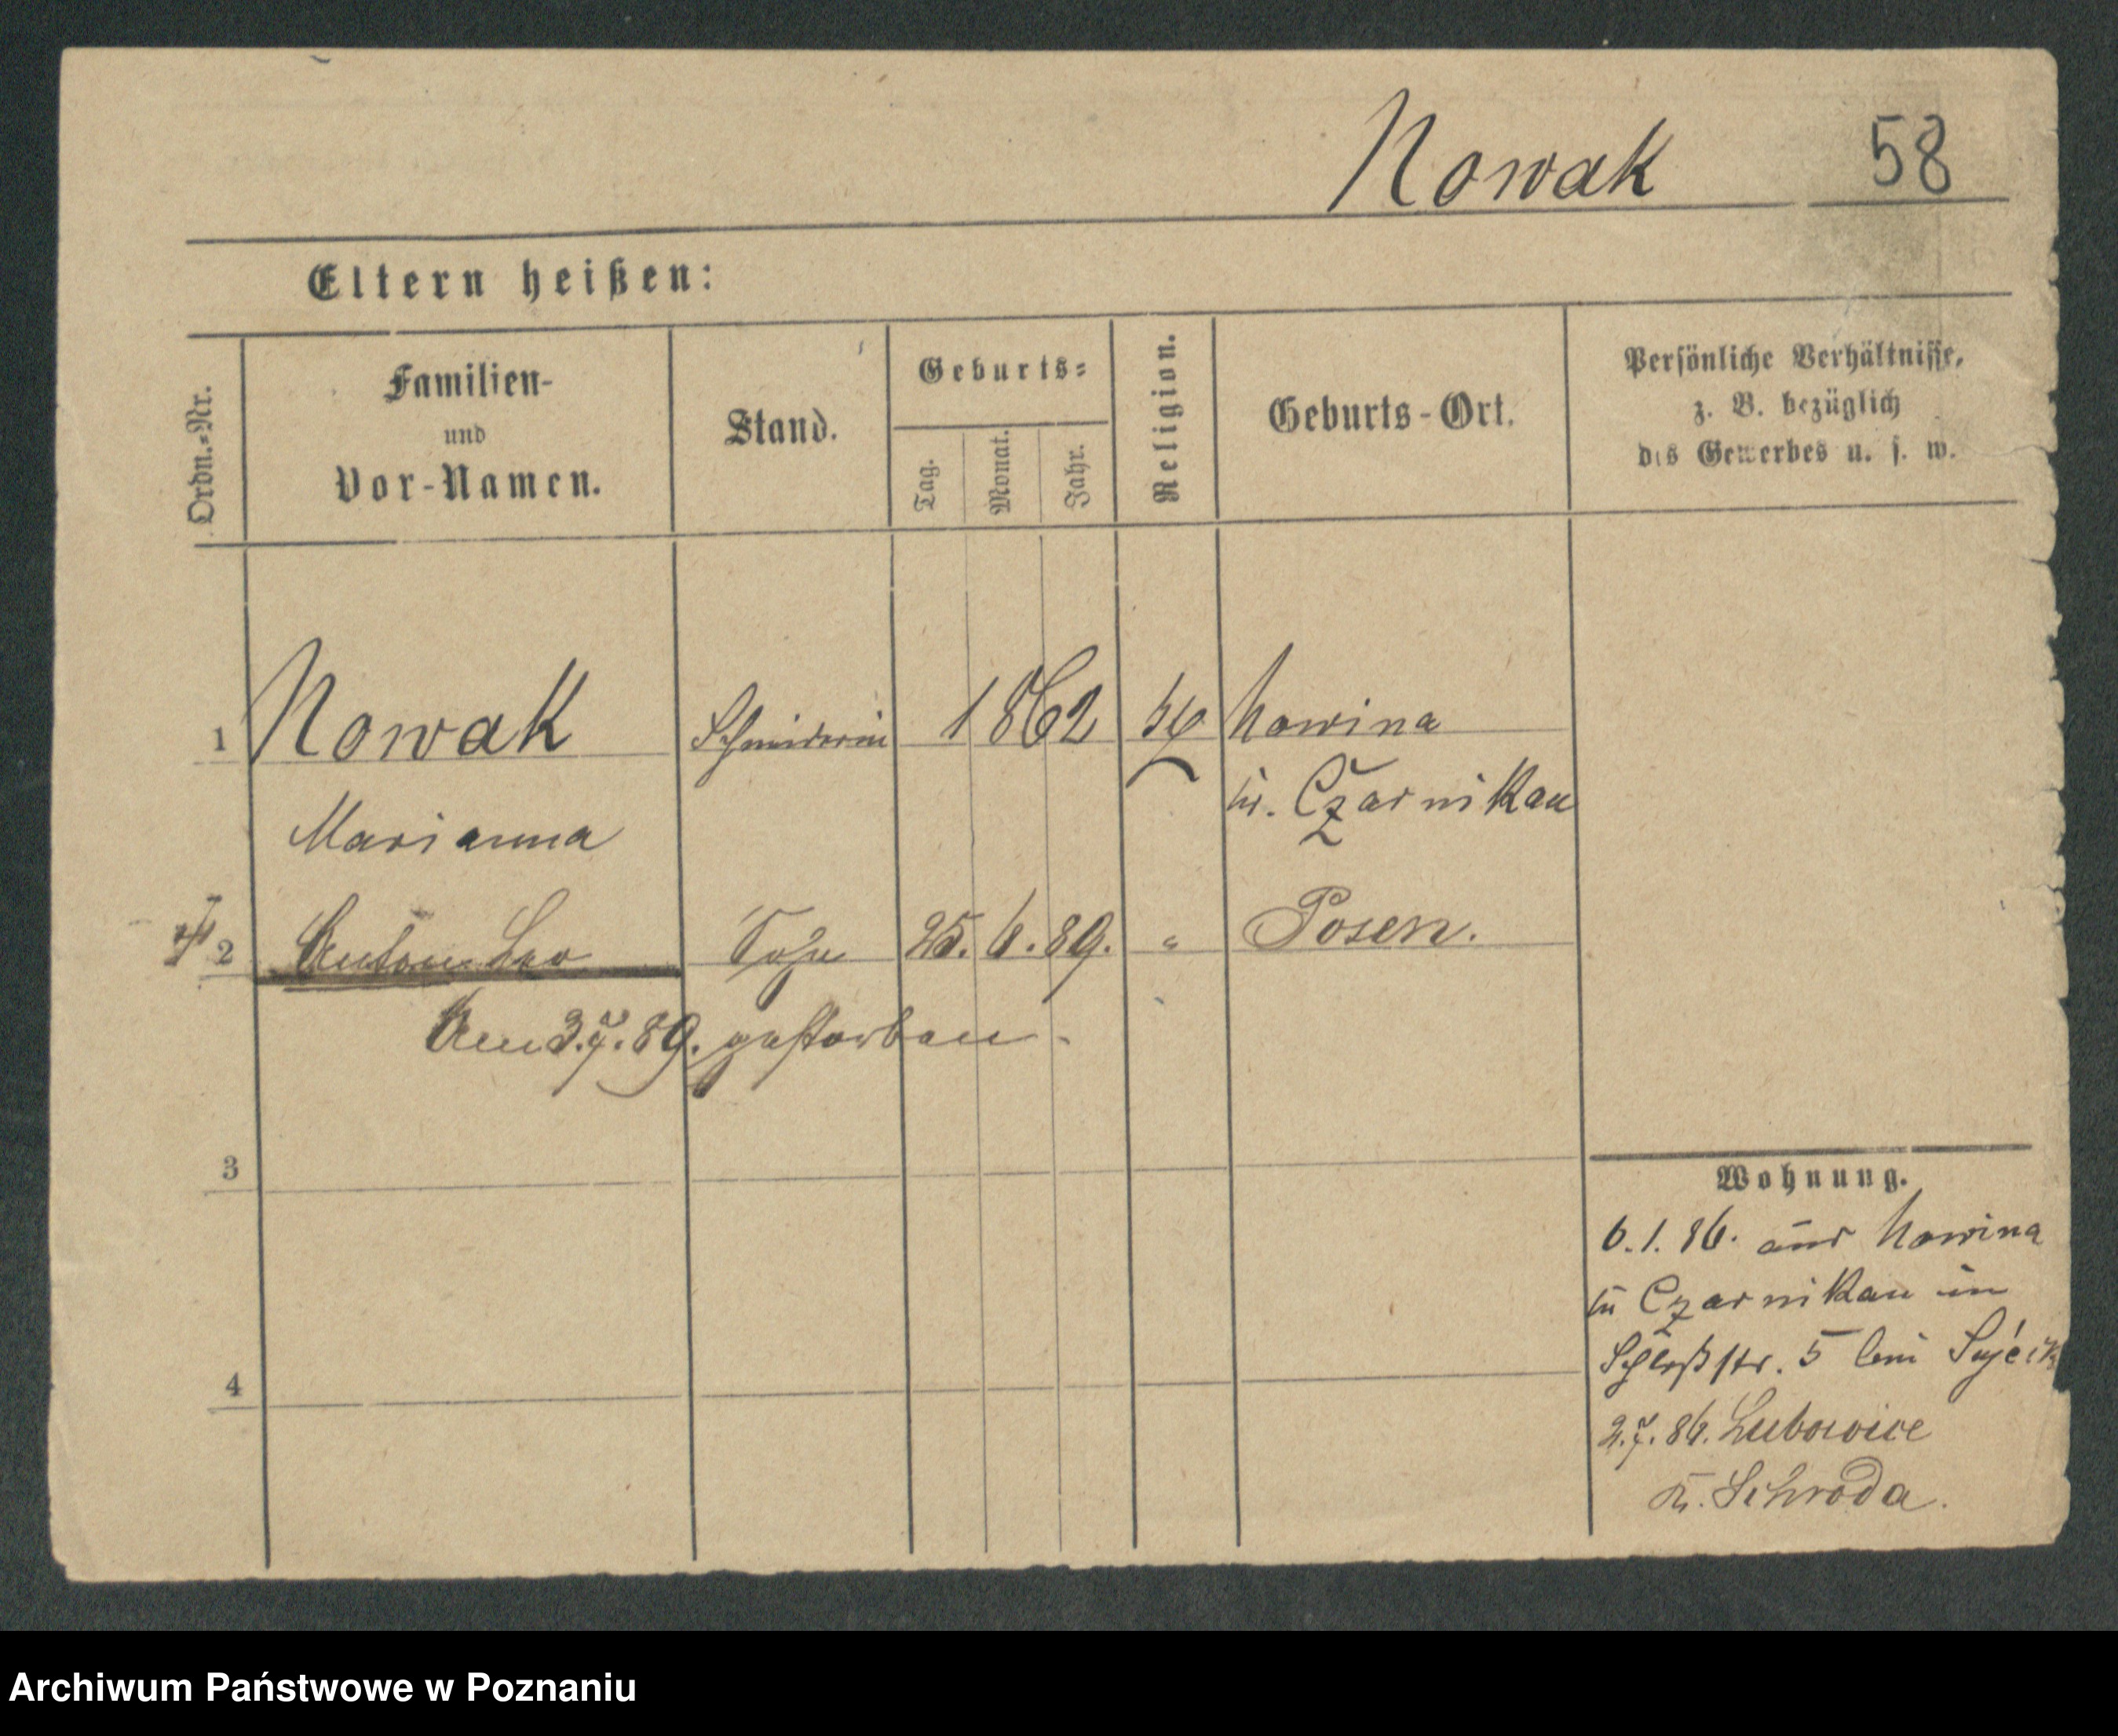 Nowak 58
Eltern heißen:
Ordn.-Nr.
Familien-
und
Vor-Namen.
Stand.
Geburts-
Tag.
Monat.
Jahr.
Religion.
Geburts-Ort.
Persönliche Verhältnisse,
z. B. bezüglich
des Gewerbes u. s. w.
1 Nowak Schneiderin 1862 Nowina
Kr. Czarnikau
Marianna
2 Anton Leo Sohn 25. 6. 89. " Posen.
Am 3.7.89. gestorben.
3
4
Wohnung.
6.1.86. aus Nowina
Kr Czarnikau in
Schloßstr. 5 bei
2.7.86. Lubowice
Kr. Schroda.
Archiwum Państwowe w Poznaniu